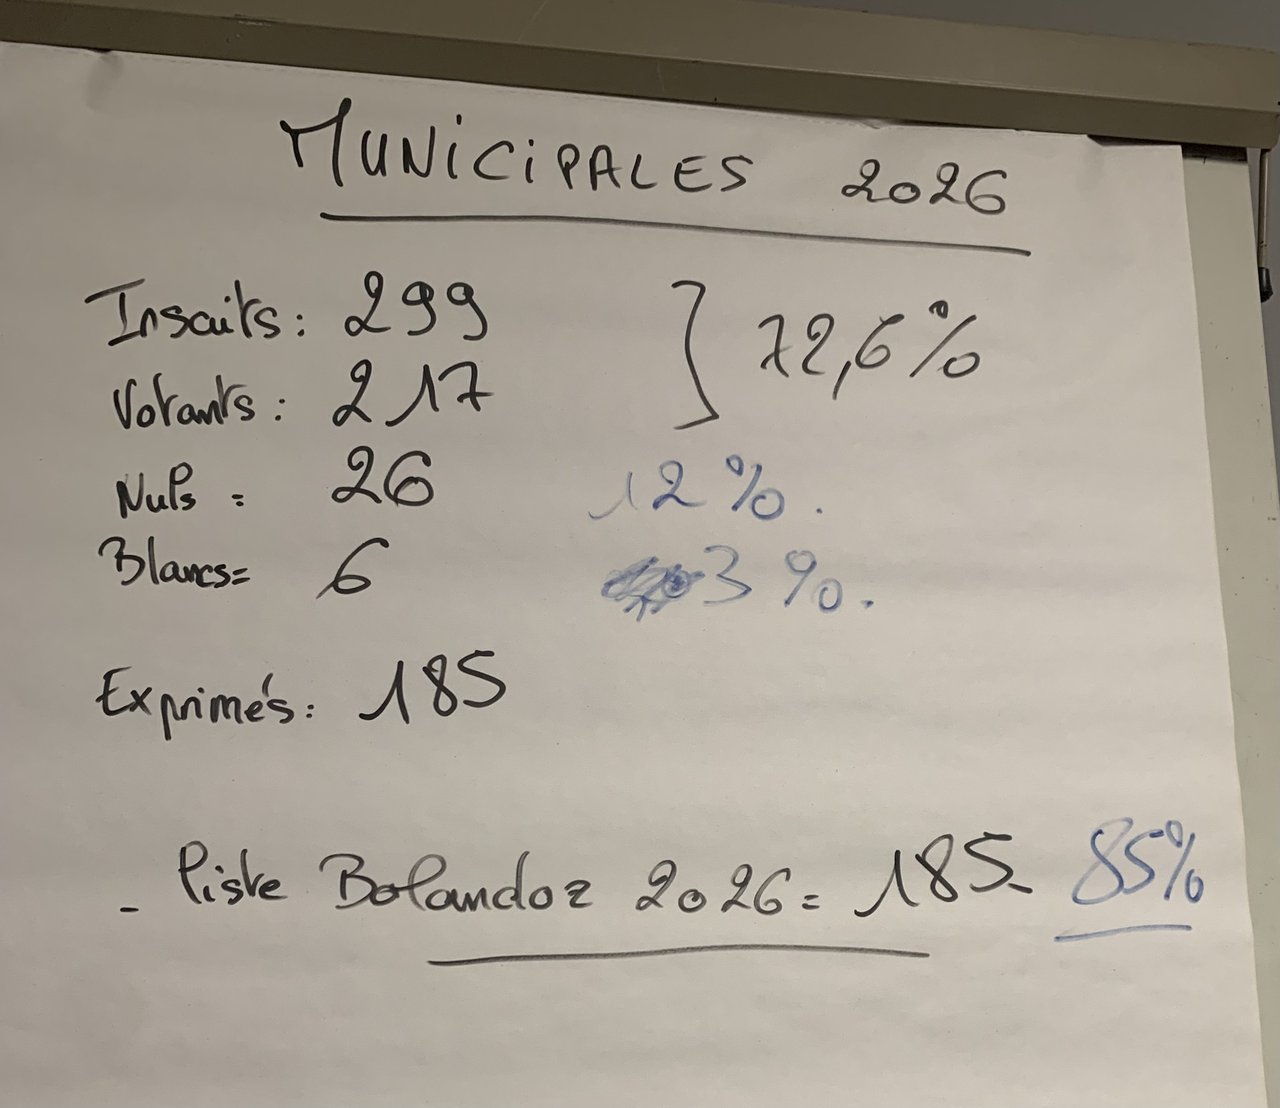 MUNICIPALES 2026
Inscrits : 299
72,6%
Votants : 217
Nuls = 26 12%.
Blancs = 6 3%.
Exprimés : 185
- liste Bolandoz 2026 = 185- 85%